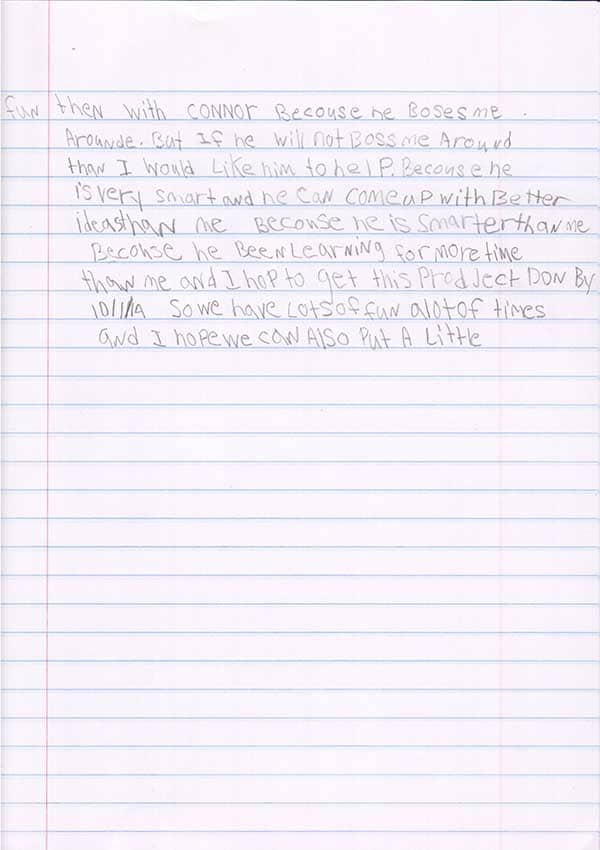 fun then with CONNOR Becouse he Boses me.
Arounde. But If he will not Boss me Around
than I would Like him to help. Becouse he
is very smart and he can come up with Better
ideas than me Becouse he is smarter than me
Becouse he Been Learning for more time
than me and I hop to get this Prodject DON By
10/1/14 So we have Lots of fun alot of times
and I hope we can Also Put A Little